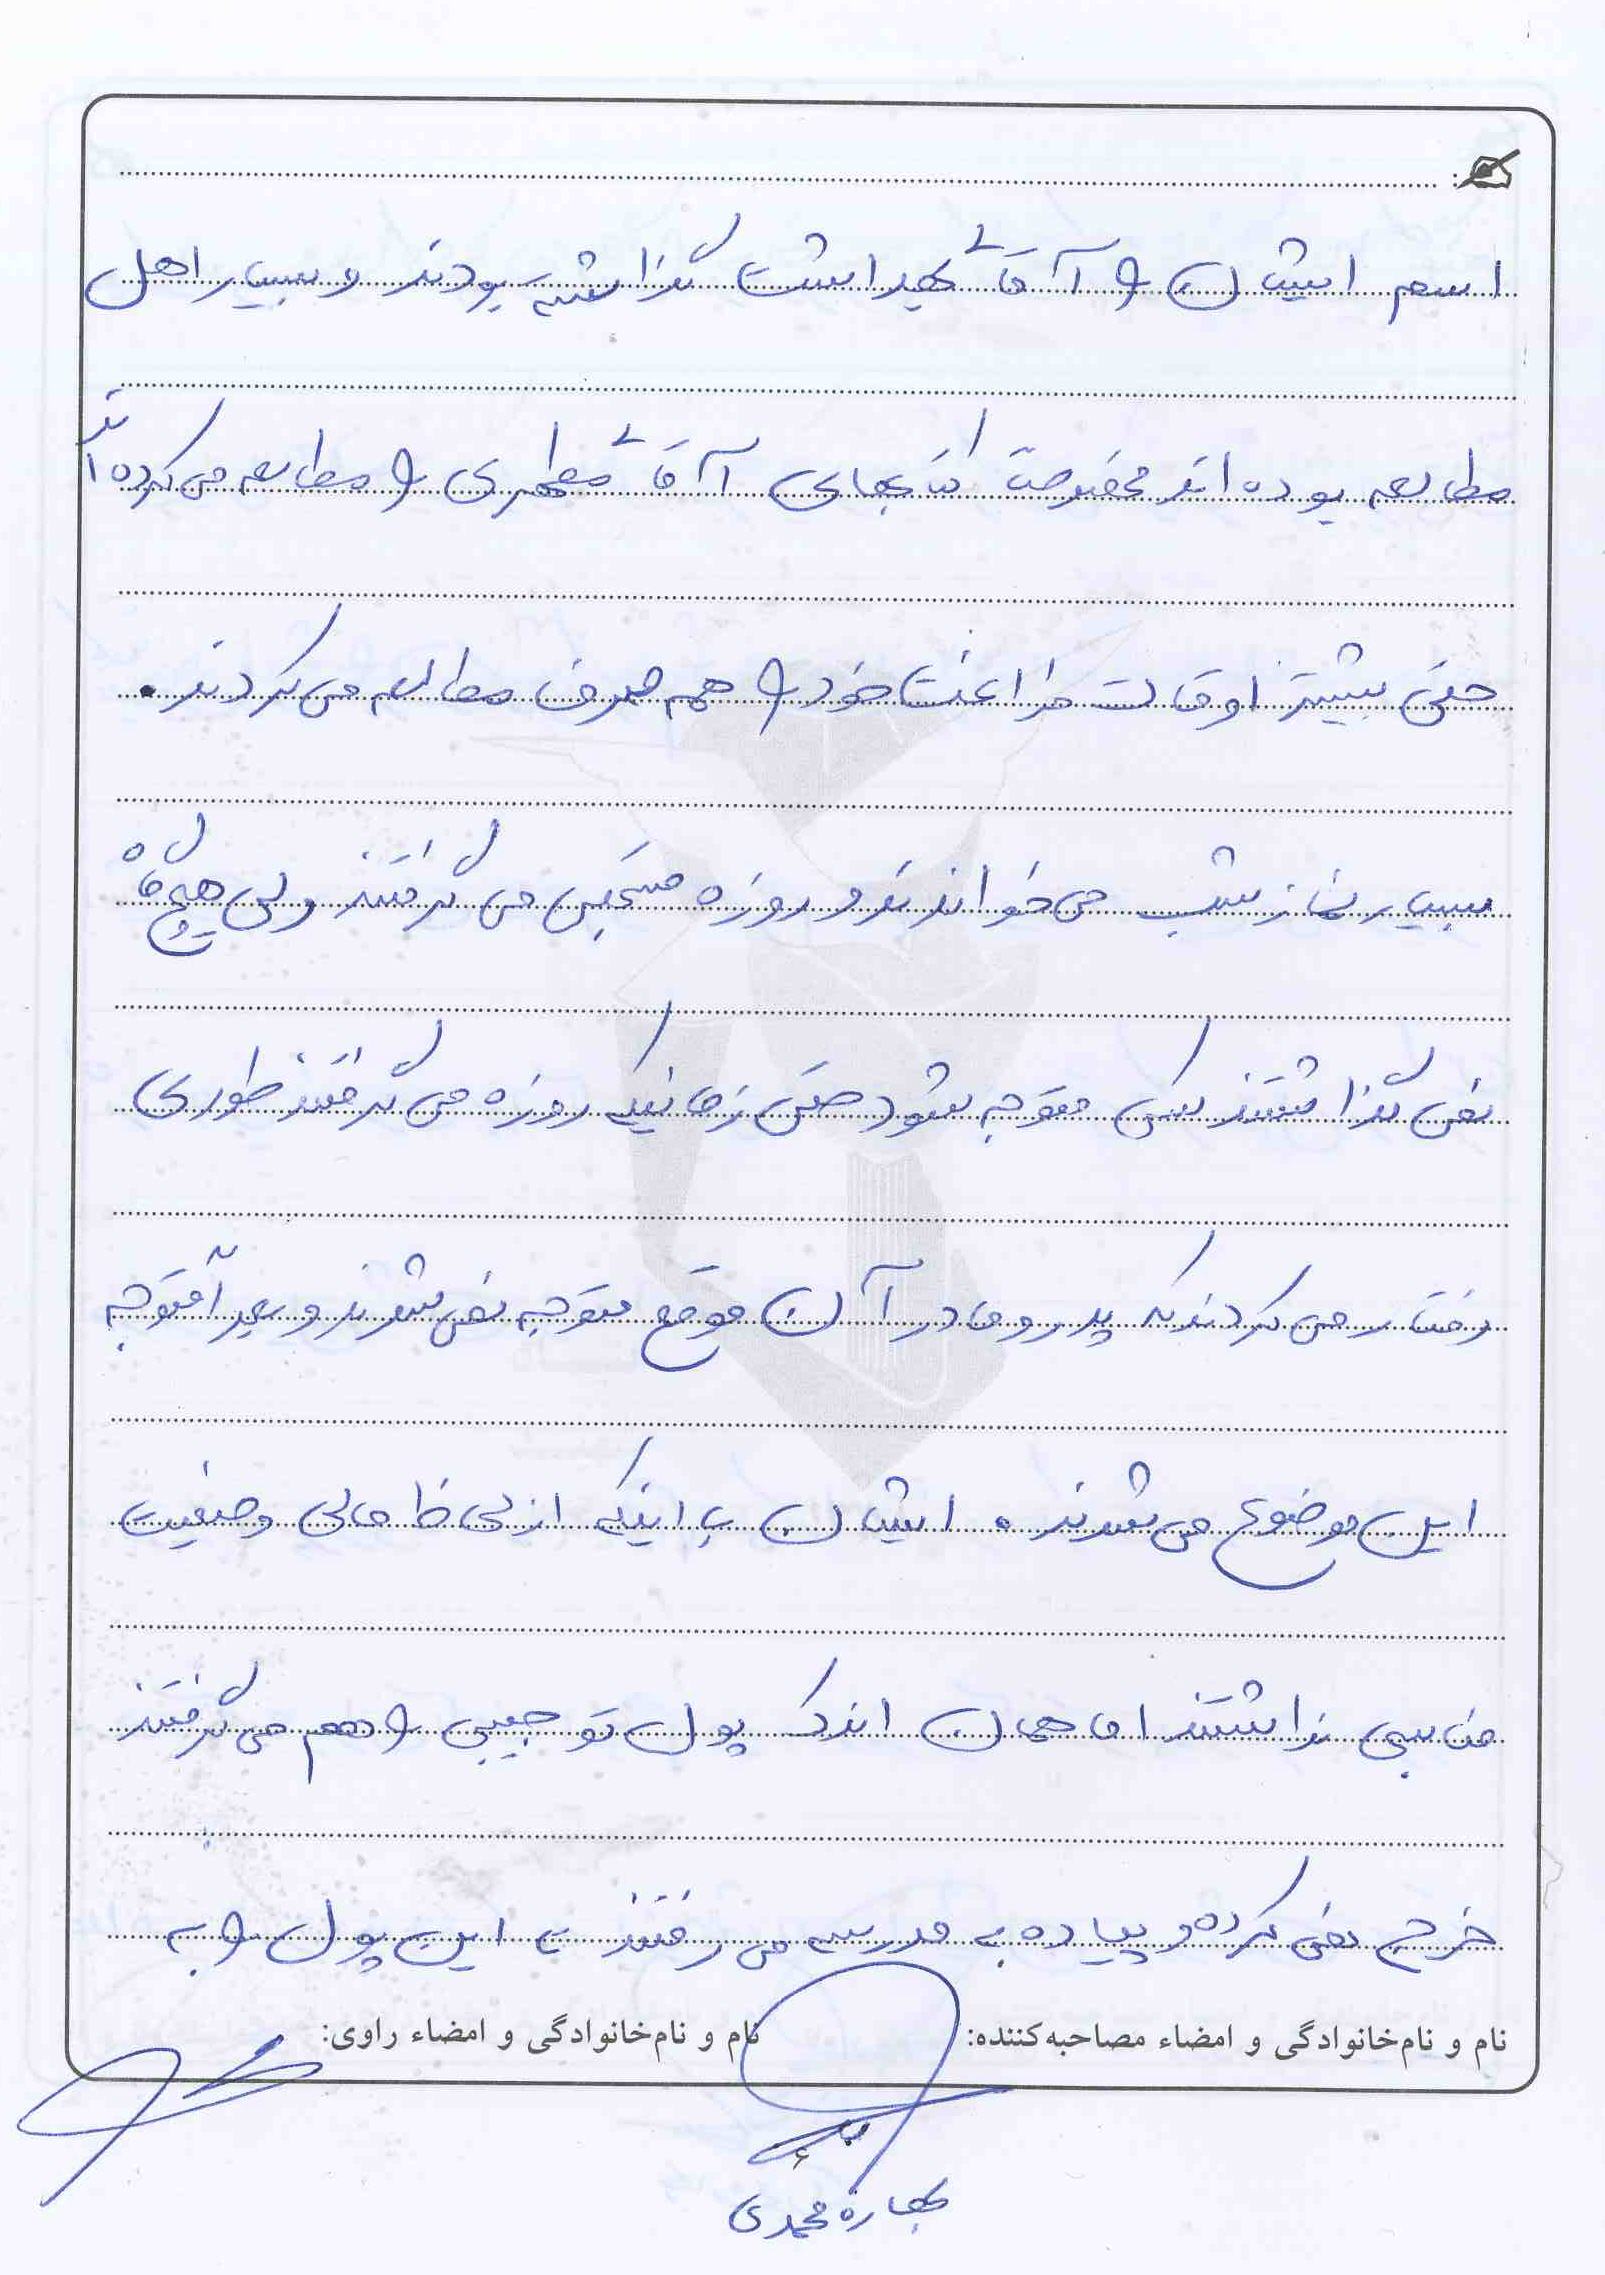 اسم ایشان را آقای بهداشت گذاشته بودند و بسیار اهل
مطالعه بوده اند مخصوصا کتابهای آقای مطهری را مطالعه می کرده اند
حتی بیشتر اوقات فراغت خود را هم صرف مطالعه می کردند.
بسیار نماز شب می خواندند و روزه مستحبی می گرفتند ولی هیچ گاه
نمی گذاشتند کسی متوجه شود حتی زمانیکه روزه می گرفتند طوری
رفتار می کردند که پدر و مادر آن موقع متوجه نمی شدند و بعداً متوجه
این موضوع می شدند. ایشان با اینکه از لحاظ مالی وضعیت
مناسبی نداشتند اما همان اندک پول تو جیبی را هم می گرفتند
خرج نمی کرده و پیاده به مدرسه می رفتند تا این پول را به
نام و نام‌خانوادگی و امضاء مصاحبه‌کننده: نام و نام‌خانوادگی و امضاء راوی:
۶
بهاره محمدی